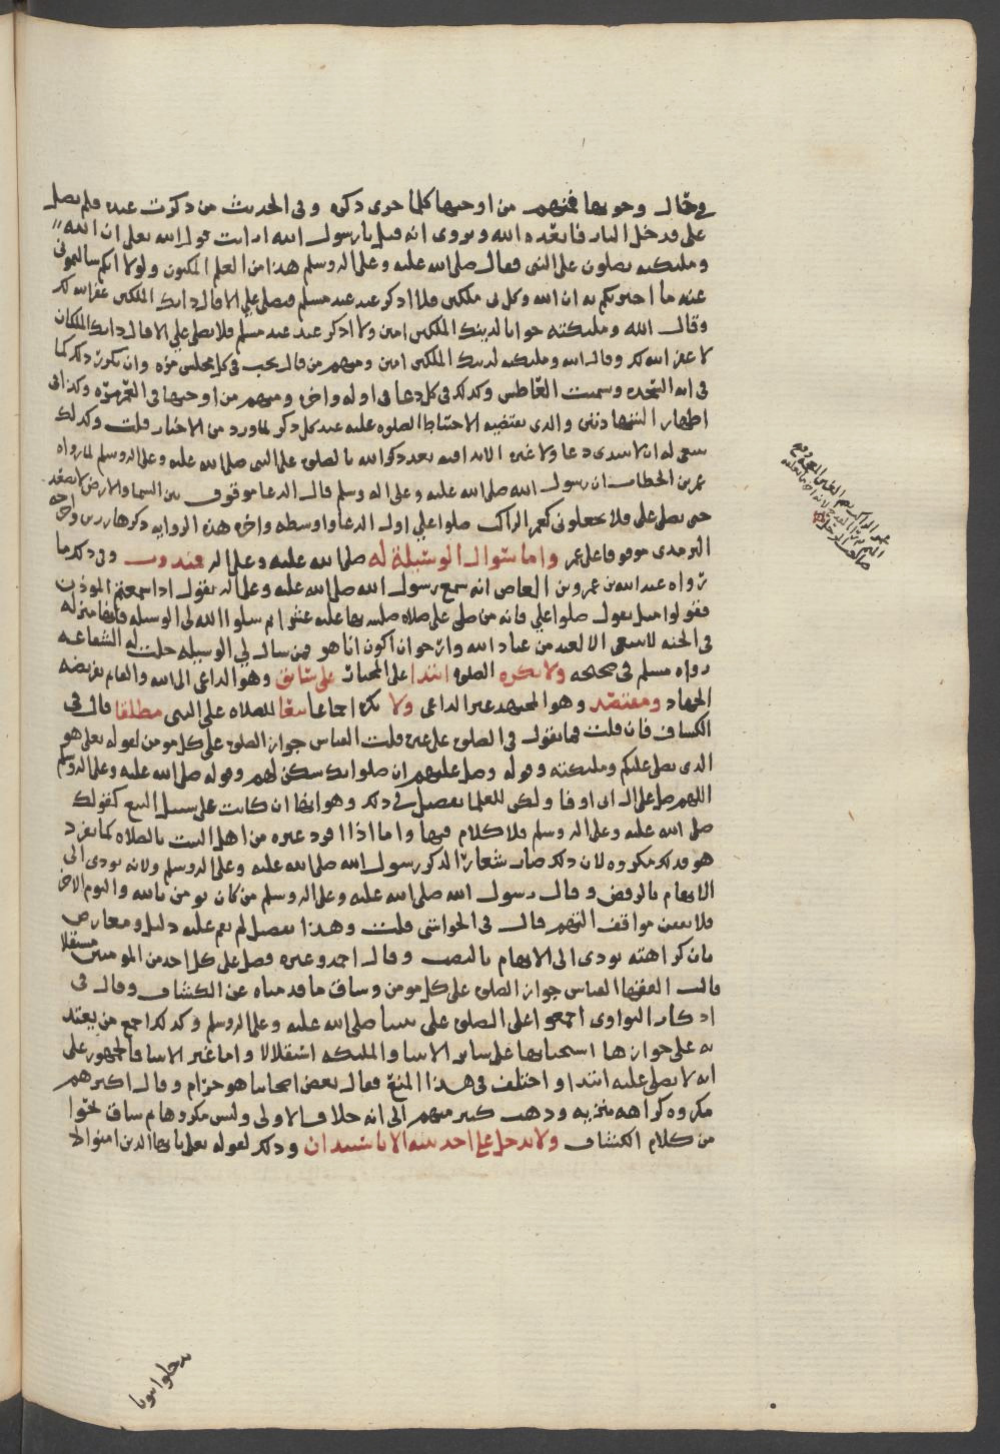 في حال وجوبها فمنهم من اوجبها كلما جرى ذكره وفي الحديث من ذكرت عنده فلم يصل
على فدخل النار فابعده الله ويروى انه قيل يا رسول الله ارايت قول الله تعلى ان الله
وملئكته يصلون على النبي فقال صلى الله عليه وعلى اله وسلم هذا من العلم المكنون ولولا انكم سالتموني
عنه ما اخبرتكم به ان الله وكل بي ملكين فلا اذكر عند عبد مسلم فيصلي علي الا قال ذانك الملكين غفر الله لك
وقال الله وملئكته جوابا لذينك الملكين امين ولا اذكر عند عبد مسلم فلا يصلي علي الا قال ذانك الملكان
لا غفر الله لك وقال الله وملئكته لذينك الملكين امين ومنهم من قال يجب في كل مجلس مره وان تكرر ذلك كما
في اية السجده وسميت العاطس وكذلك في كل دعا في اوله واخره ومنهم من اوجبها في العمر مره وكذا في
اظهار الشهادتين والذي يقتضيه الاحتياط الصلوه عليه عند كل ذكر لما ورد من الاخبار قلت وكذلك
ينبغي له ان لا يبتدي دعا ولا غيره الا بد افيه بعد ذكر الله بالصلوه على النبي صلى الله عليه وعلى اله وسلم لما رواه
عمر بن الخطاب ان رسول الله صلى الله عليه وعلى اله وسلم قال الدعا موقوف بين السما والارض لا يصعد
حتى يصلى علي فلا تجعلوني كغمر الراكب صلوا علي اول الدعا واوسطه واخره هذه الروايه ذكرها رزين واخرجه
الترمذي موقوفا على عمر واما سوال الوسيلة له صلى الله عليه وعلى اله فمندوب وفي ذلك ما
رواه عبد الله بن عمرو بن العاص انه سمع رسول الله صلى الله عليه وعلى اله يقول اذا سمعتم الموذن
فقولوا مثل يقول صلوا علي فانه من صلى علي صلاه صلى الله بها عليه عشرا ثم سلوا الله لي الوسيله فانها منزله
في الجنه لا تنبغي الا لعبد من عباد الله وارجو ان اكون انا هو فمن سال لي الوسيله حلت له الشفاعه
رواه مسلم في صحيحه ولا تكره الصلوه ابتدا على المحيات على سابق وهو الداعي الى الله والقام بفريضه
الجهاد ومقتصد وهو المجتهد غير الداعي ولا تكره اجماعا تبعا للصلاه على النبي مطلقا قال في
الكشاف فان قلت فما تقول في الصلوه على غيره قلت القياس جواز الصلوه على كل مومن لقوله تعلى هو
الذي يصلي عليكم وملئكته وقوله وصل عليهم ان صلواتك سكن لهم وقوله صلى الله عليه وعلى اله وسلم
اللهم صل على ال ابي اوفا ولكن للعلما تفصيل في ذلك وهو انها ان كانت على سبيل التبع كقولك
صلى الله عليه وعلى اله وسلم فلا كلام فيها واما اذا افرد غيره من اهل البيت بالصلاه كما يفرد
هو فذلك مكروه لان ذلك صار شعارا لذكر رسول الله صلى الله عليه وعلى اله وسلم ولانه يودي الى
الاتهام بالرفض وقال رسول الله صلى الله عليه وعلى اله وسلم من كان يومن بالله واليوم الاخر
فلا يقفن مواقف التهم قال في الحواشي قلت وهذا تفصيل لم يقم عليه دليل ومعارض
بان كراهته تودي الى الاتهام بالنصب وقال احمد وغيره فصل على كل احد من المومنين مستقلا
قالت الفقها القياس جواز الصلوه على كل مومن وساق ما قدمناه عن الكشاف وقال في
اذكار النواوي اجمعوا على الصلوه على نبينا صلى الله عليه وعلى اله وسلم وكذلك اجمع من يعتد
به على جوازها استحبابها على ساير الانبيا والملئكه استقلالا واما غير الانبيا فالجمهور على
انه لا يصلى عليه ابتدا واختلف في هذا المنع فقال بعض اصحابنا هو حرام وقال اكثرهم
مكروه كراهه تنزيه وذهب كثير منهم الى انه خلاف الاولى وليس مكروها ثم ساق نحوا
من كلام الكشاف ولا يدخل على احد بيته الا باستيذان وذلك لقوله تعلى يا ايها الذين امنوا لا
تدخلوا بيوتا